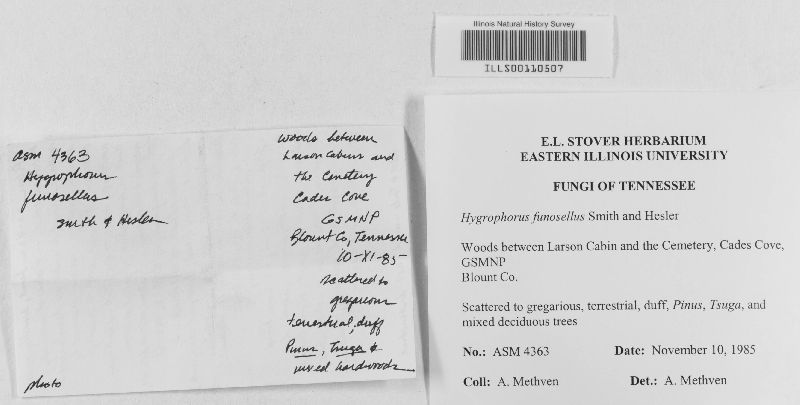 Illinois Natural History Survey
ILLS00110507
asm 4363
Hygrophorus
funosellus
Smith & Hesler
Woods between
Larson Cabins and
the Cemetery
Cades Cove
GSMNP
Blount Co, Tennessee
10-XI-85
scattered to
gregarious
terrestrial, duff
Pinus, Tsuga &
mixed hardwoods
photo
E.L. STOVER HERBARIUM
EASTERN ILLINOIS UNIVERSITY
FUNGI OF TENNESSEE
Hygrophorus funosellus Smith and Hesler
Woods between Larson Cabin and the Cemetery, Cades Cove,
GSMNP
Blount Co.
Scattered to gregarious, terrestrial, duff, Pinus, Tsuga, and
mixed deciduous trees
No.: ASM 4363 Date: November 10, 1985
Coll: A. Methven Det.: A. Methven